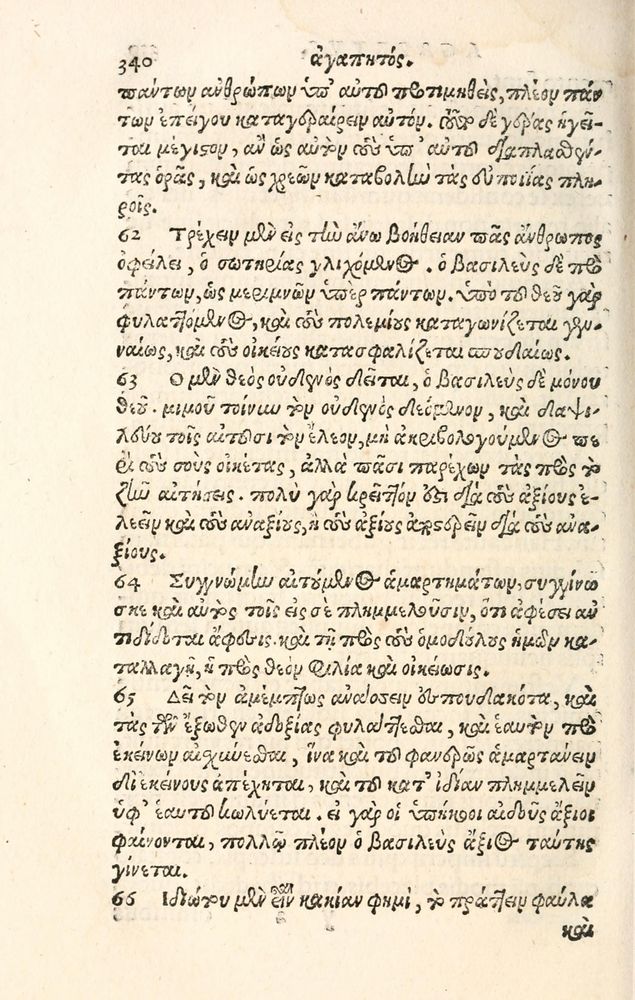 340 ἀγαπητός.
πάντων ἀνθρώπων ὑπ' αὐτοῦ προτιμηθεὶς, πλέον πάν
των ἐπείγου καταγεραίρειν αὐτόν. τοῦτο δὲ γέρας ἡγεῖ-
ται μέγιστον, ἂν ὡς αὐτὸν τοὺς ὑπ' αὐτοῦ διαπλασθέν-
τας ὁρᾷς, καὶ ὡς χρεῶν καταβολὴν τὰς εὐποιΐας πλη-
ροῖς.
62 Τρέχειν μὲν εἰς τὴν ἄνω βοήθειαν πᾶς ἄνθρωπος
ὀφείλει, ὁ σωτηρίας γλιχόμενος. ὁ βασιλεὺς δὲ πρὸ
πάντων, ὡς μεριμνῶν ὑπὲρ πάντων. ὑπὸ τοῦ θεοῦ γὰρ
φυλαττόμενος, καὶ τοὺς πολεμίους καταγωνίζεται γεν-
ναίως, καὶ τοὺς οἰκείους κατασφαλίζεται σπουδαίως.
63 Ὁ μὲν θεὸς οὐδενὸς δεῖται, ὁ βασιλεὺς δὲ μόνου
θεοῦ. μιμοῦ τοίνυν τὸν οὐδενὸς δεόμενον, καὶ δαψι-
λεύου τοῖς αἰτοῦσι τὸν ἔλεον, μὴ ἀκριβολογούμενος πε
ρὶ τοὺς σοὺς οἰκέτας, ἀλλὰ πᾶσι παρέχων τὰς πρὸς τὸ
ζῆν αἰτήσεις. πολὺ γὰρ κρεῖττόν ἐστι διὰ τοὺς ἀξίους ἐ-
λεεῖν καὶ τοὺς ἀναξίους, ἢ τοὺς ἀξίους ἀποστερεῖν διὰ τοὺς ἀνα-
ξίους.
64 Συγγνώμην αἰτούμενος ἁμαρτημάτων, συγγίνω
σκε καὶ αὐτὸς τοῖς εἰς σὲ πλημμελοῦσιν, ὅτι ἀφέσει ἀν
τιδίδοται ἄφεσις. καὶ τῇ πρὸς τοὺς ὁμοδούλους ἡμῶν κα-
ταλλαγῇ, ἡ πρὸς θεὸν φιλία καὶ οἰκείωσις.
65 Δεῖ τὸν ἀμέμπτως ἀνάσσειν ἐσπουδακότα, καὶ
τὰς τῶν ἔξωθεν ἀδοξίας φυλάττεσθαι, καὶ ἑαυτὸν πρὸ
ἐκείνων αἰσχύνεσθαι, ἵνα καὶ τοῦ φανερῶς ἁμαρτάνειν
δι' ἐκείνους ἀπέχηται, καὶ τοῦ κατ' ἰδίαν πλημμελεῖν
ὑφ' ἑαυτοῦ κωλύεται. εἰ γὰρ οἱ ὑπήκοοι αἰδοῦς ἄξιοι
φαίνονται, πολλῷ πλέον ὁ βασιλεὺς ἄξιος ταύτης
γίνεται.
66 Ἰδιώτου μὲν εἶναι κακίαν φημὶ, τὸ πράττειν φαῦλα
καὶ